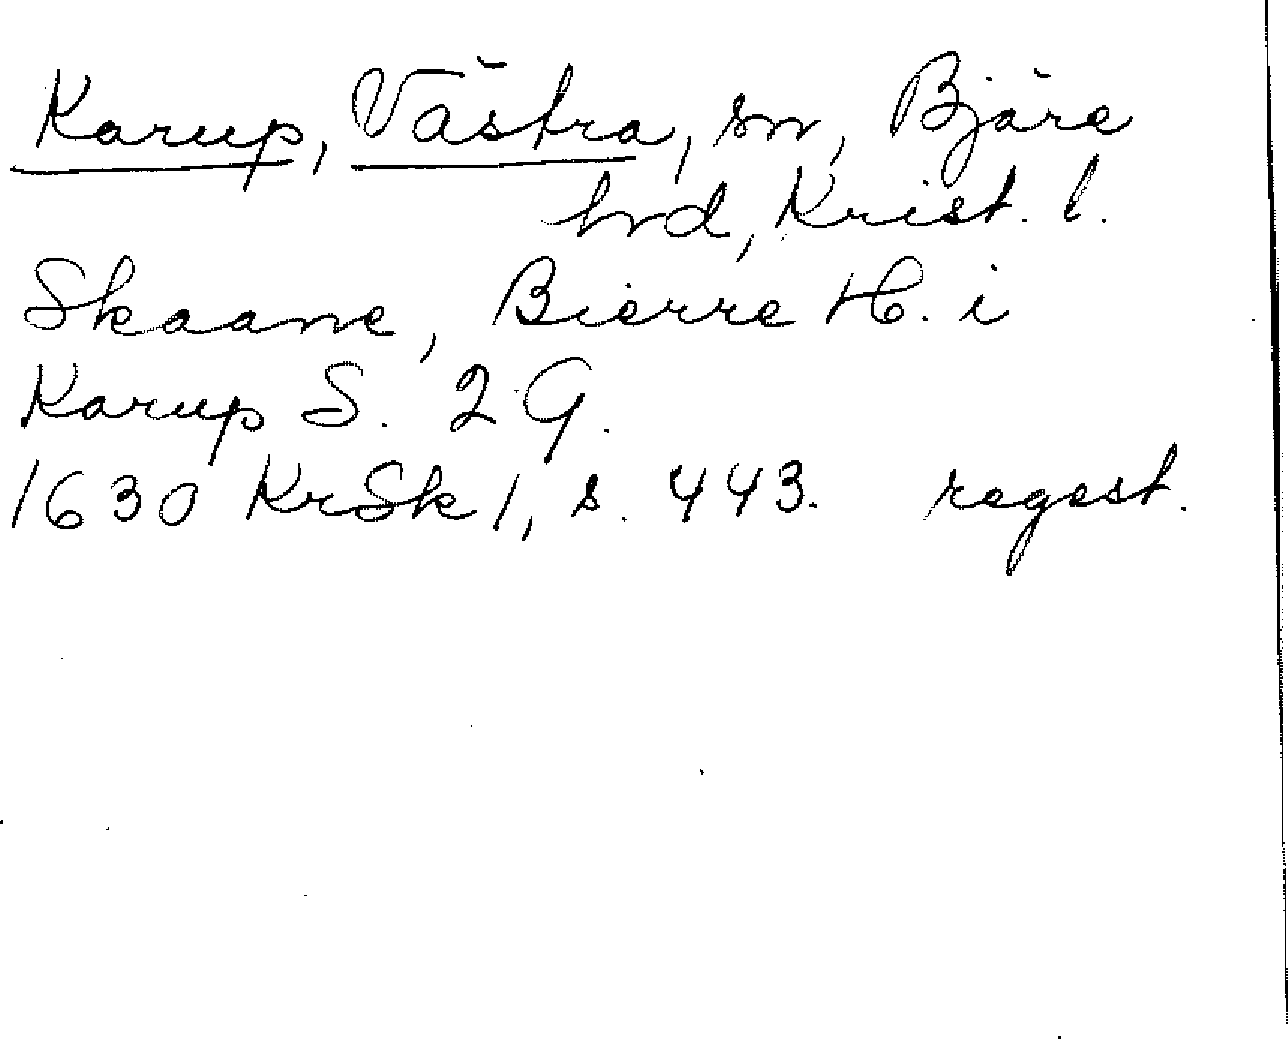 Karup, Västra, sn, Bjäre
hrd, Krist. l.
Skaane, Bierre H. i
Karup S. 2 G.
1630 KrSk 1, s. 443. regest.